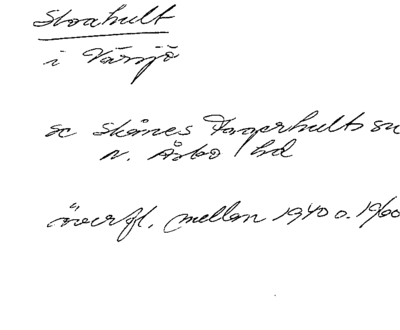 Stoahult
i Värsjö
se Skånes Fagerhults sn
N. Åsbo hd
överfl. mellan 1940 o. 1960